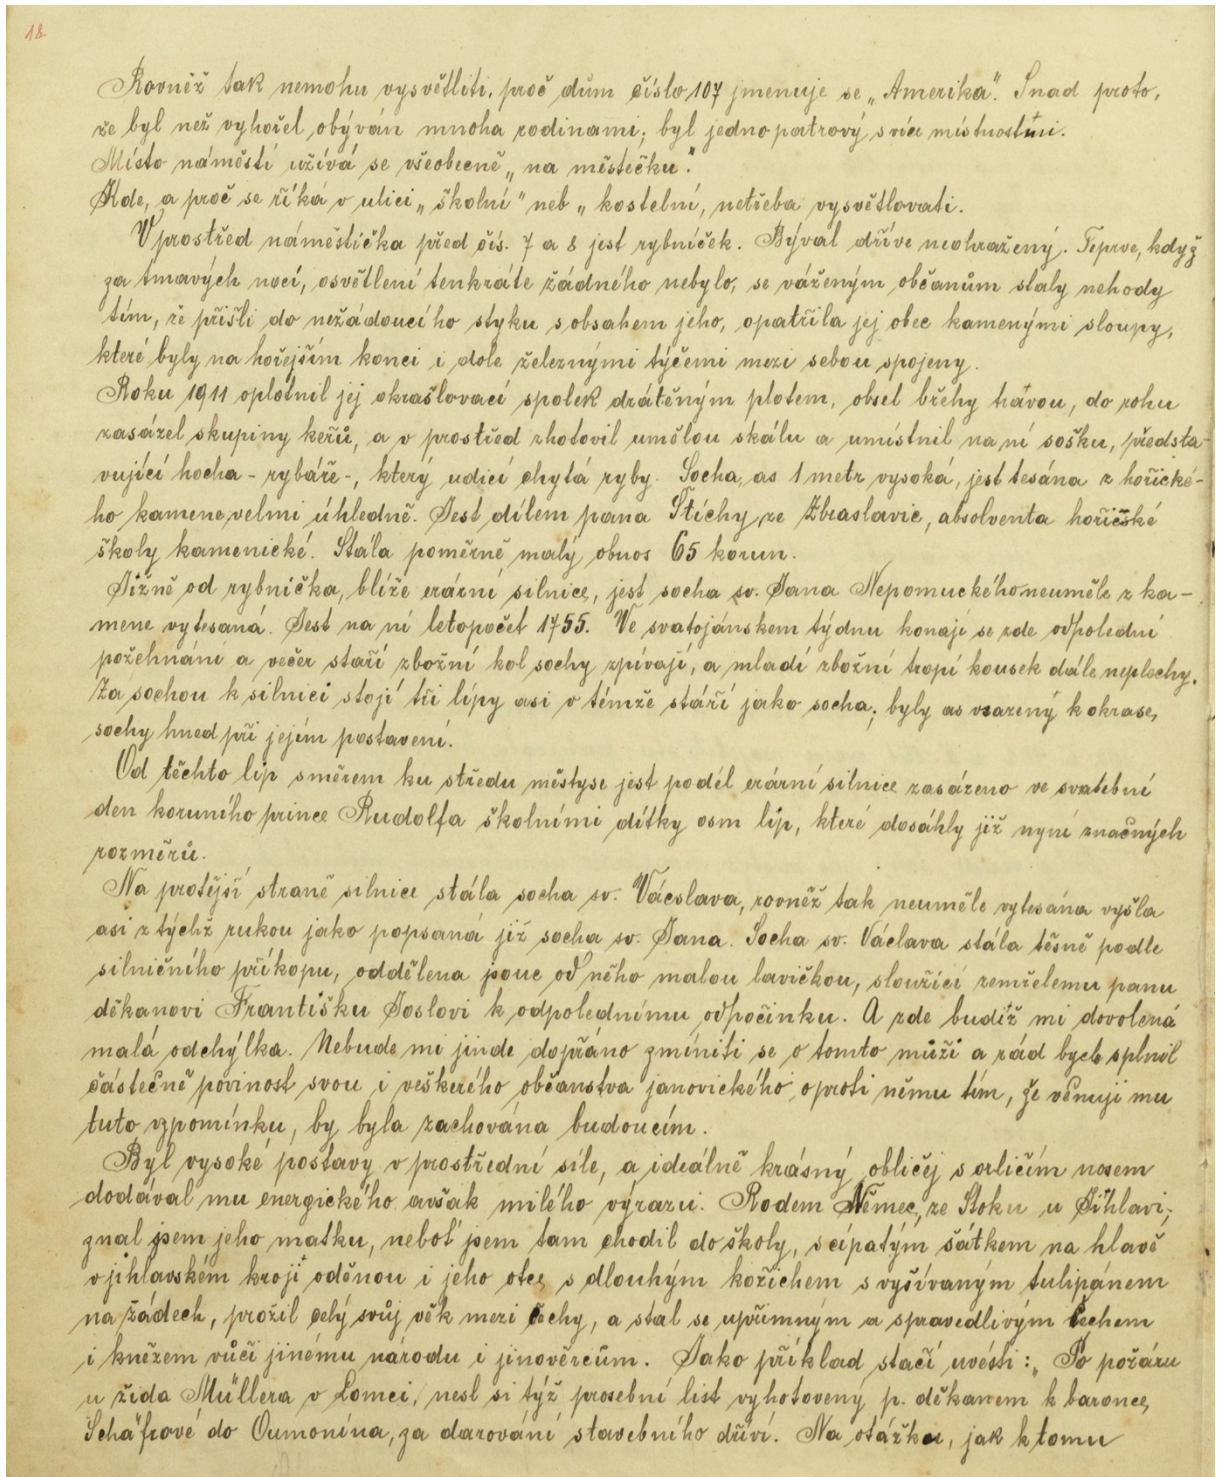 18.
Rovněž tak nemohu vysvětliti, proč dům číslo 107 jmenuje se „Amerika". Snad proto,
že byl než vyhořel obýván mnoha rodinami; byl jednopatrový s více místnostmi.
Místo náměstí užívá se všeobecně „na městečku".
Kde, a proč se říká v ulici „školní" neb „kostelní, netřeba vysvětlovati.
Vprostřed náměstíčka před čís. 7 a 8 jest rybníček. Býval dříve neohražený. Teprve, když
za tmavých nocí, osvětlení tenkráte žádného nebylo, se váženým občanům staly nehody
tím, že přišli do nežádoucího styku s obsahem jeho, opatřila jej obec kamenými sloupy,
které byly na hořejším konci i dole železnými týčemi mezi sebou spojeny.
Roku 1911 oplotnil jej okrašlovací spolek drátěným plotem, obsel břehy trávou, do rohu
zasázel skupiny keřů, a v prostřed zhotovil umělou skálu a umístnil na ní sošku, předsta-
vující hocha - rybáře -, který udicí chytá ryby. Socha, as 1 metr vysoká, jest tesána z hořické-
ho kamene velmi úhledně. Jest dílem pana Štíchy ze Zbraslavic, absolventa hořičské
školy kamenické. Stála poměrně malý obnos 65 korun.
Jižně od rybníčka, blíže erární silnice, jest socha sv. Jana Nepomuckého neuměle z ka-
mene vytesaná. Jest na ní letopočet 1755. Ve svatojánskem týdnu konají se zde odpolední
požehnání a večer staří zbožní kol sochy zpívají, a mladí zbožní tropí kousek dále neplechy.
Za sochou k silnici stojí tři lípy asi v témže stáří jako socha; byly as vsazeny k okrase,
sochy hned při jejím postavení.
Od těchto lip směrem ku středu městyse jest podél erární silnice zasázeno ve svatební
den koruního prince Rudolfa školními dítky osm lip, které dosáhly již nyní značných
rozměrů.
Na protější straně silnice stála socha sv. Vácslava, rovněž tak neuměle vytesána vyšla
asi z týchž rukou jako popsaná již socha sv. Jana. Socha sv. Václava stála těsně podle
silničního příkopu, oddělena jsouc od něho malou lavičkou, sloužící zemřelemu panu
děkanovi Františku Joslovi k odpolednímu odpočinku. A zde budiž mi dovolená
malá odchýlka. Nebude mi jinde dopřáno zmíniti se o tomto muži a rád bych splnil
částečně povinost svou i veškerého občanstva janovického oproti němu tím, že věnuji mu
tuto vzpomínku, by byla zachována budoucím.
Byl vysoké postavy v prostřední síle, a ideálně krásný obličej s orličím nosem
dodával mu energického avšak milého výrazu. Rodem Němec, ze Štoku u Jihlavi;
znal jsem jeho matku, neboť jsem tam chodil do školy, s cípatým šátkem na hlavě
v jihlavském kroji oděnou i jeho otce s dlouhým kožichem s vyšívaným tulipánem
na žádech, prožil celý svůj věk mezi čechy, a stal se upřímným a spravedlivým Čechem
i knězem vůči jinému národu i jinověrcům. Jako příklad stačí uvésti: „Po požáru
u žida Müllera v Lomci, nesl si týž prosební list vyhotovený p. děkanem k baronce,
Schäfrové do Oumonína, za darování stavebního dříví. Na otázku, jak k tomu